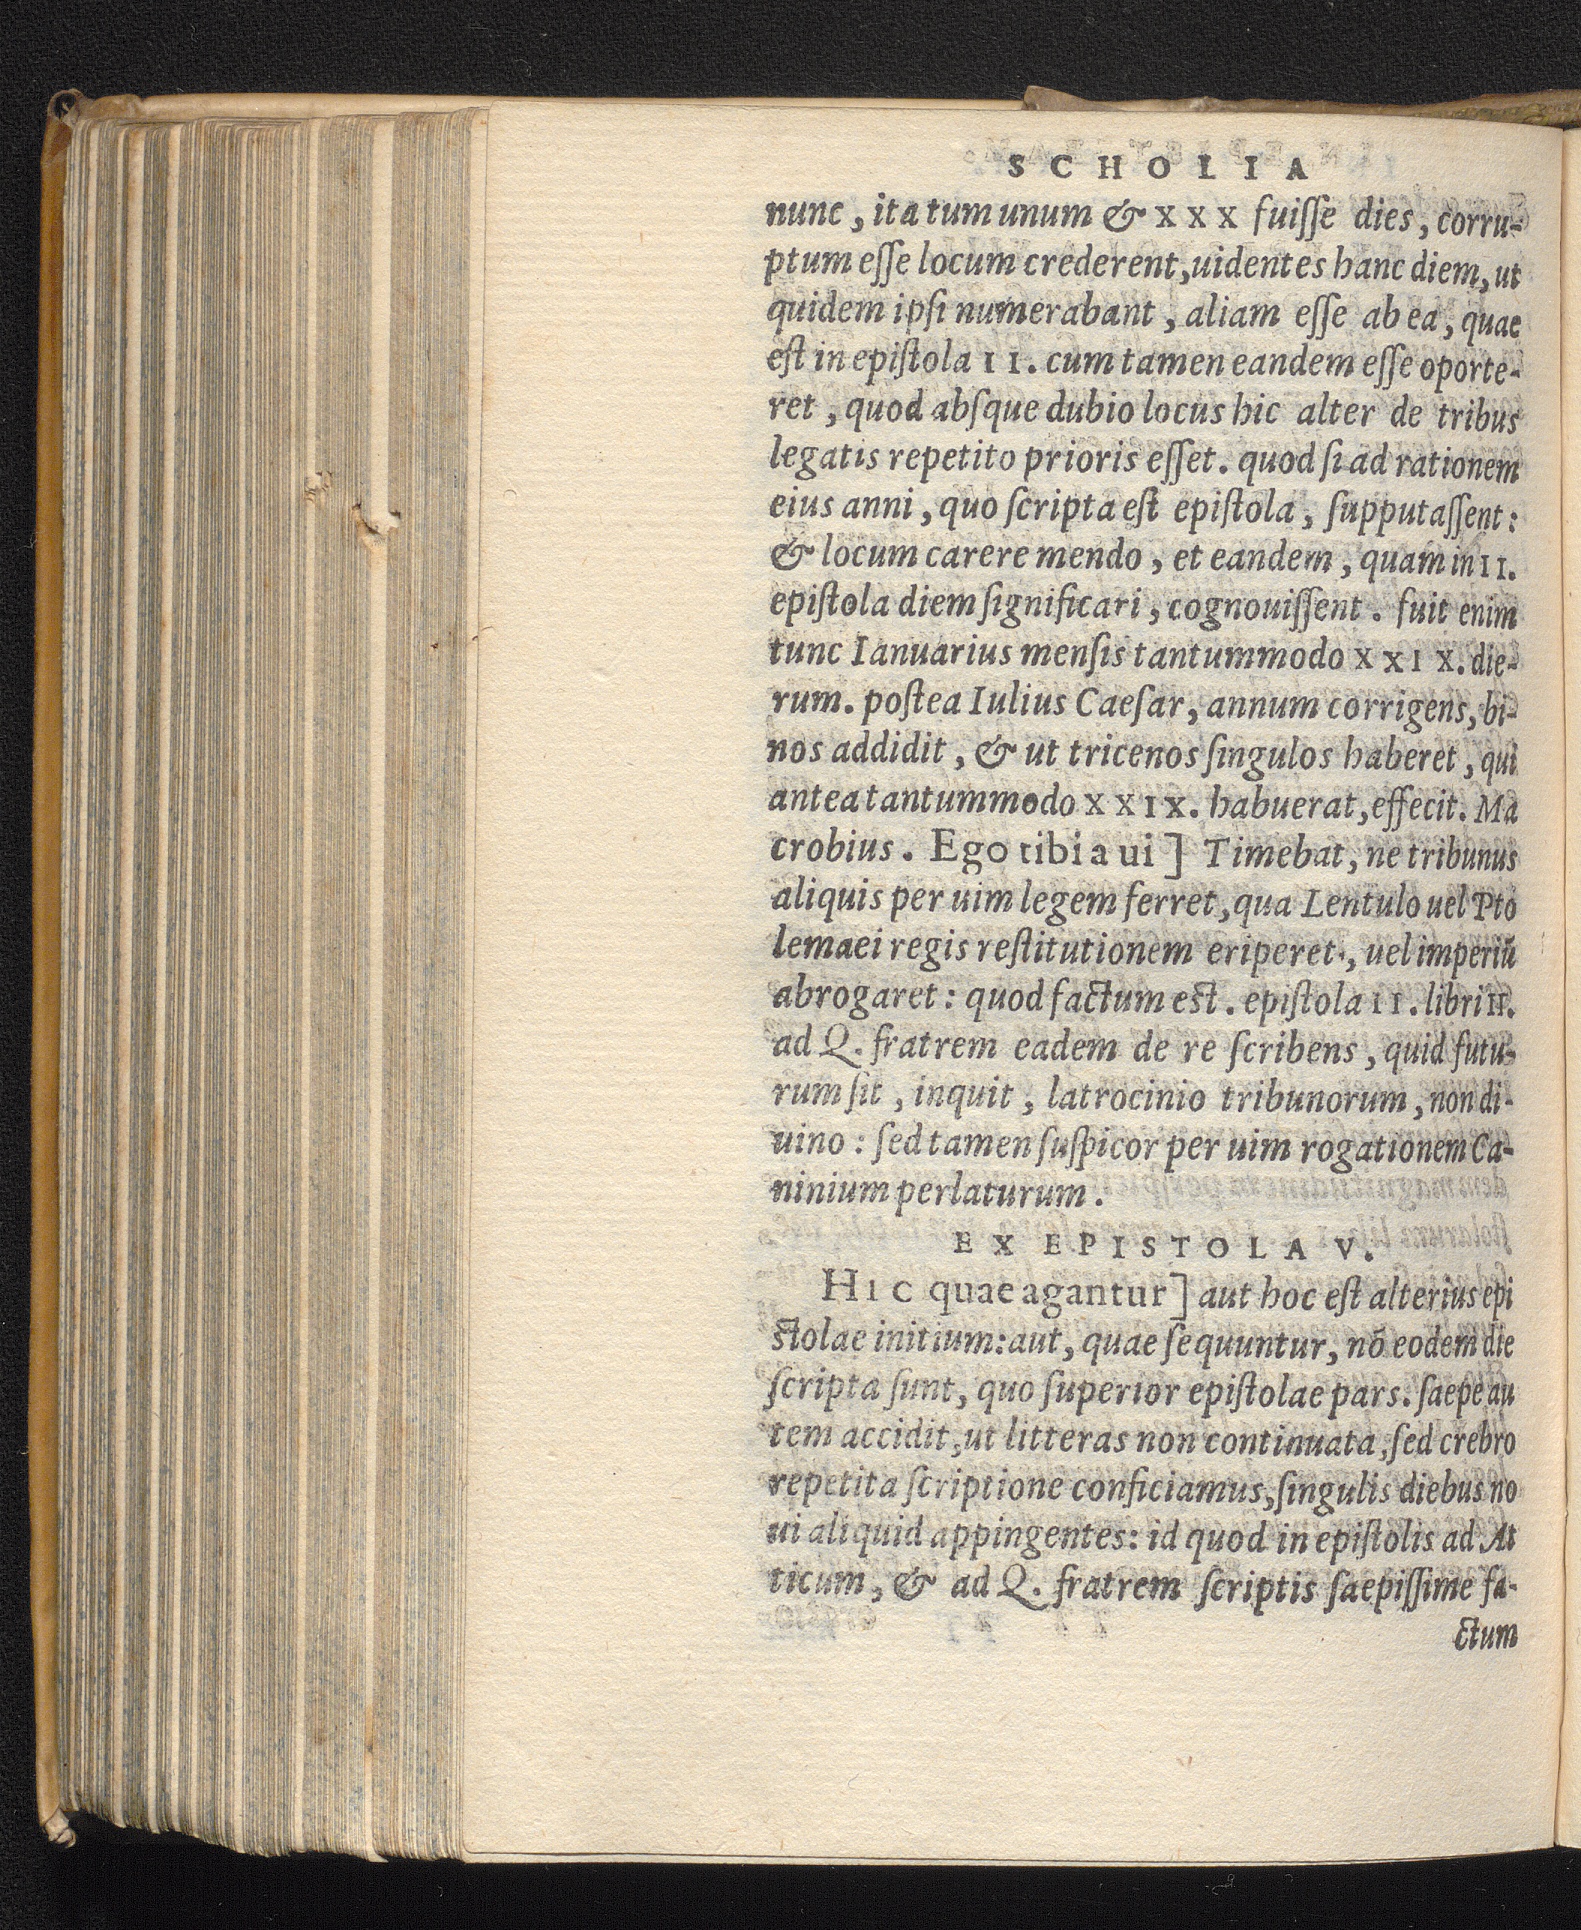 SCHOLIA
nunc, ita tum unum & XXX fuiſſe dies, corru-
ptum eſſe locum crederent, uidentes hanc diem, ut
quidem ipſi numerabant, aliam eſſe ab ea, quae
eſt in epiſtola II. cum tamen eandem eſſe oporte-
ret, quod abſque dubio locus hic alter de tribus
legatis repetito prioris eſſet. quod ſi ad rationem
eius anni, quo ſcripta eſt epiſtola, ſupputaſſent:
& locum carere mendo, et eandem, quam in II.
epiſtola diem ſignificari, cognouiſſent. fuit enim
tunc Ianuarius menſis tantummodo XXIX. die-
rum. poſtea Iulius Caeſar, annum corrigens, bi-
nos addidit, & ut tricenos ſingulos haberet, qui
antea tantummodo XXIX. habuerat, effecit. Ma
crobius. Ego tibi a ui] Timebat, ne tribunus
aliquis per uim legem ferret, qua Lentulo uel Pto
lemaei regis reſtitutionem eriperet, uel imperiū
abrogaret: quod factum est. epiſtola II. libri II.
ad Q. fratrem eadem de re ſcribens, quid futu-
rum ſit, inquit, latrocinio tribunorum, non di-
uino: ſed tamen ſuſpicor per uim rogationem Ca-
ninium perlaturum.
EX EPISTOLA V.
HIC quae agantur] aut hoc eſt alterius epi
stolae initium: aut, quae ſequuntur, nō eodem die
ſcripta ſunt, quo ſuperior epiſtolae pars. ſaepe au
tem accidit, ut litteras non continuata, ſed crebro
repetita ſcriptione conficiamus, ſingulis diebus no
ui aliquid appingentes: id quod in epiſtolis ad At
ticum, & ad Q. fratrem ſcriptis ſaepiſſime fa-
ctum